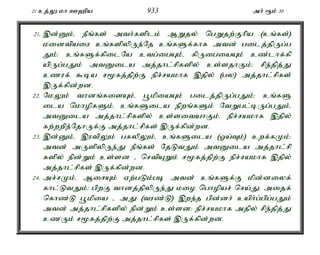 21 உத்லு மா ஊஹிய 933 அர் ரூம் 30
21. இன்னும், நீங்கள் அவர்களிடம் ஆறுதல் பெறுதற்குரிய (உங்கள்)
மனைவியரை உங்களிலிருந்தே உங்களுக்காக அவன் படைத்திருப்ப
தும்; உங்களுக்கிடையே உவப்பையும், கிருபையையும் உண்டாக்கி
யிருப்பதும் அவனுடைய அத்தாட்சிகளில் உள்ளதாகும்; சிந்தித்து
உணரக் கூடிய சமூகத்திற்கு நிச்சயமாக இதில் (பல) அத்தாட்சிகள்
இருக்கின்றன.
22. மேலும் வானங்களையும், பூமியையும் படைத்திருப்பதும்; உங்களு
டைய மொழிகளும், உங்களுடைய நிறங்களும் வேறுபட்டிருப்பதும்,
அவனுடைய அத்தாட்சிகளில் உள்ளவையாகும். நிச்சயமாக இதில்
கற்றறிந்தோருக்கு அத்தாட்சிகள் இருக்கின்றன.
23. இன்னும், இரவிலும் பகலிலும், உங்களுடைய (ஓய்வும்) உறக்கமும்;
அவன் அருளிலிருந்து நீங்கள் தேடுவதும் அவனுடைய அத்தாட்சி
களில் நின்றும் உள்ளன - செவியுறும் சமூகத்திற்கு நிச்சயமாக இதில்
அத்தாட்சிகள் இருக்கின்றன.
24. அச்சமும், ஆசையும் ஏற்படும்படி அவன் உங்களுக்கு மின்னலைக்
காட்டுவதும்; பிறகு வானத்திலிருந்து மழை பொழியச் செய்து, அதைக்
கொண்டு பூமியை - அது (வரண்டு) இறந்த பின்னர் உயிர்ப்பிப்பதும்
அவன் அத்தாட்சிகளில் நின்றும் உள்ளன; நிச்சயமாக அதில் சிந்தித்து
உணரும் சமூகத்திற்கு அத்தாட்சிகள் இருக்கின்றன.